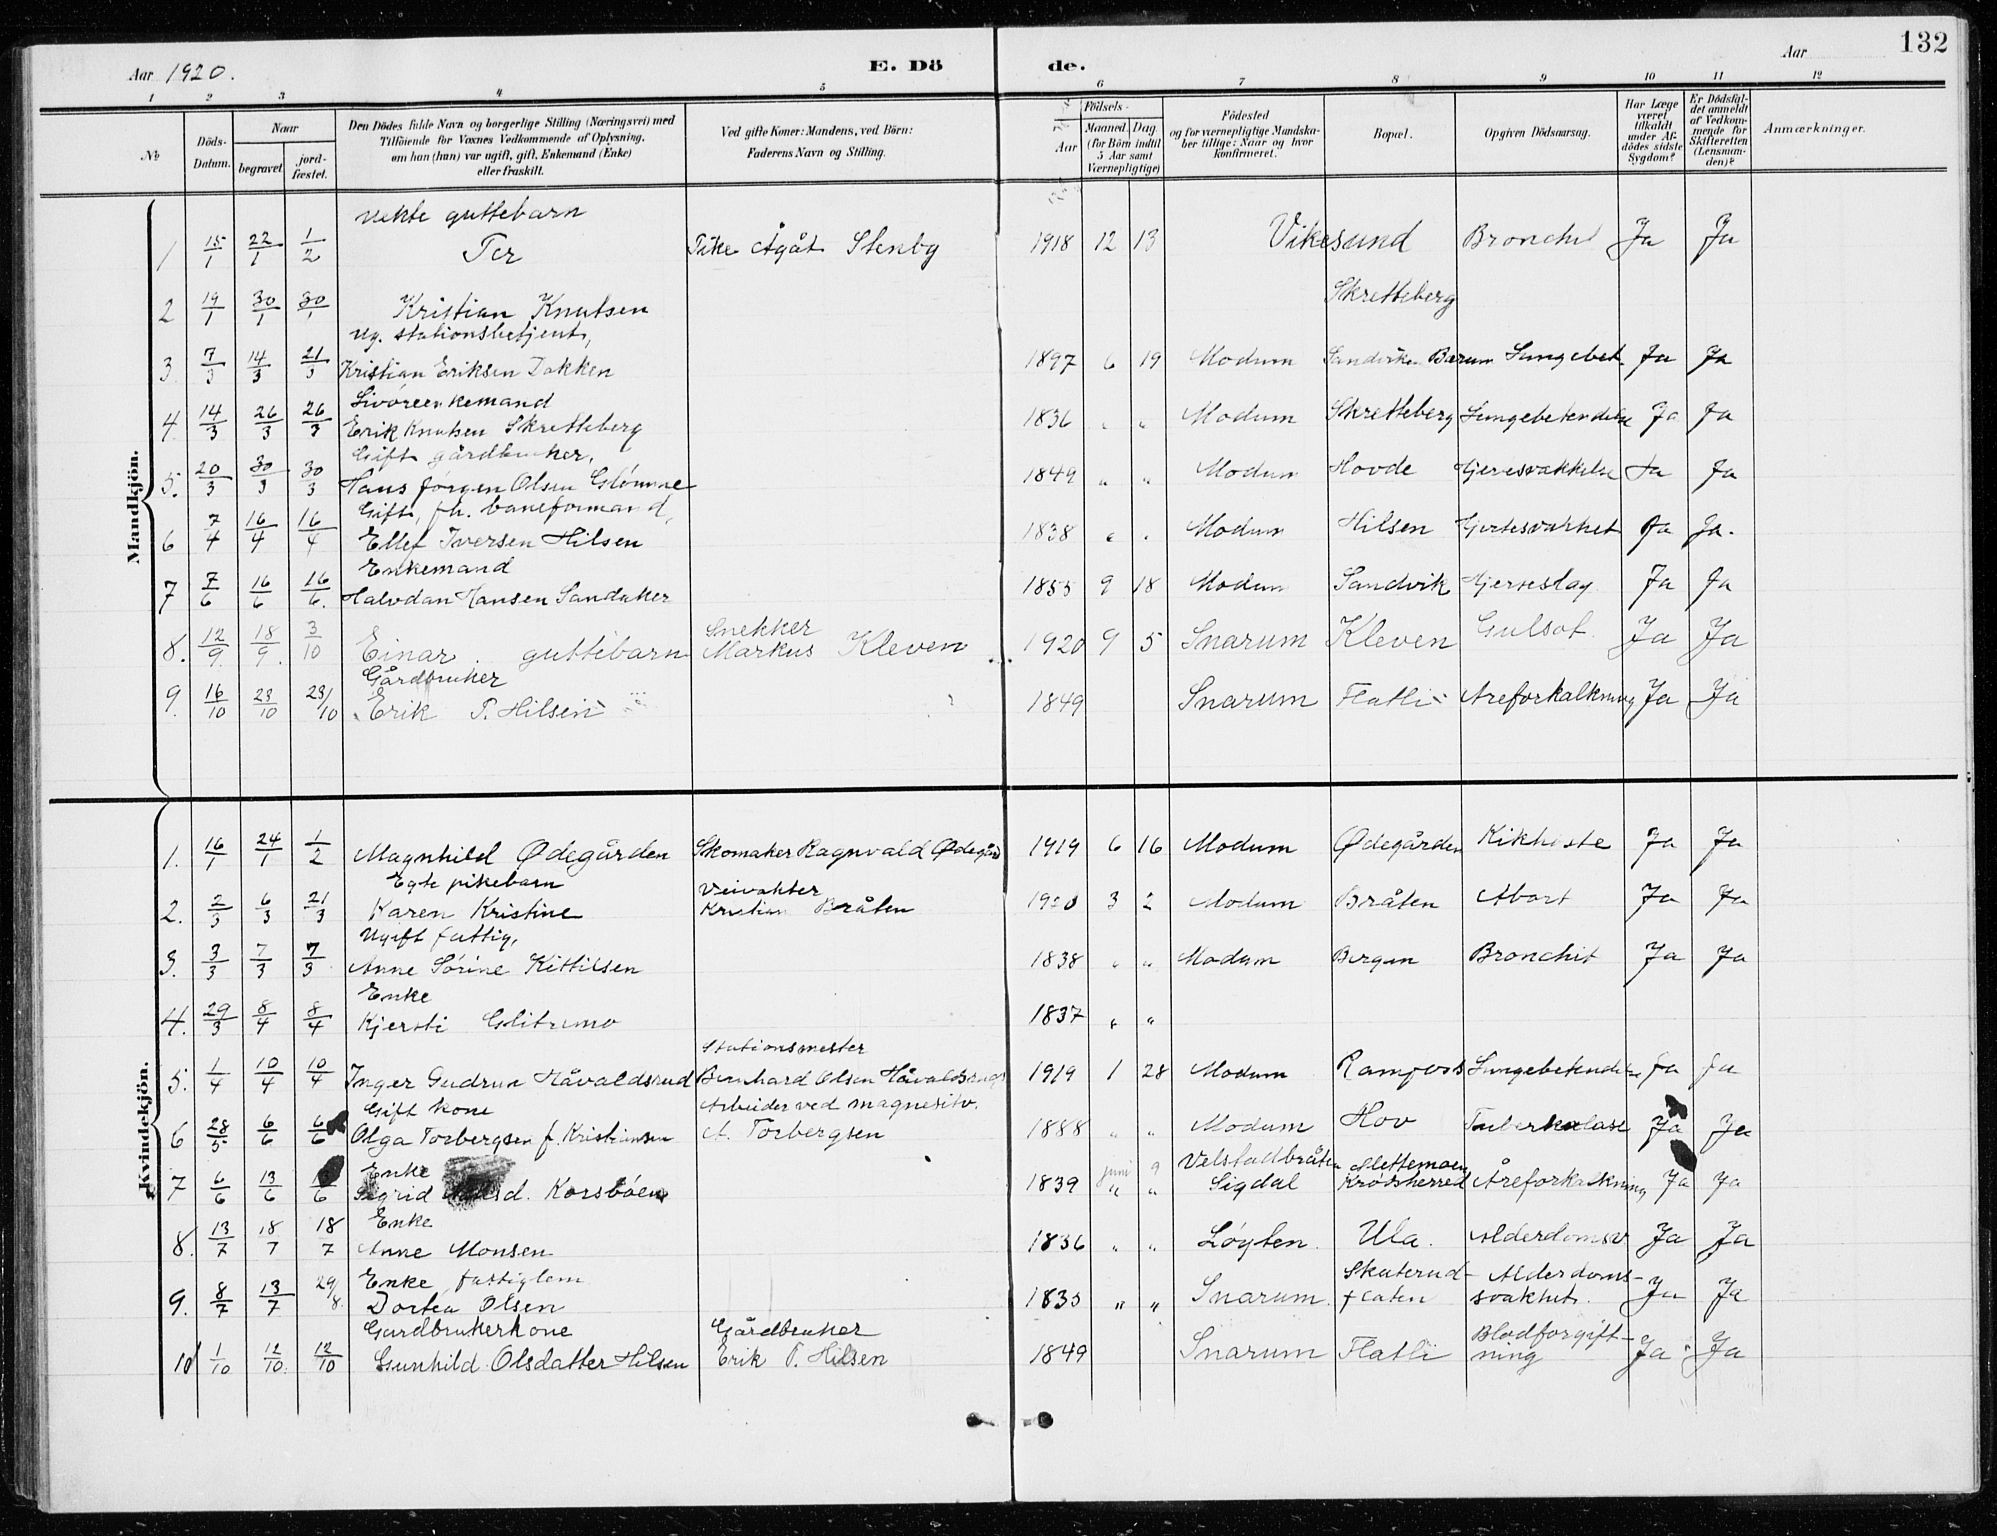 132
Aar 1920.
E. Dö de.
Aar
1 2 3 4 5 6 7 8 9 10 11 12
No
Döds-Datum.
Naar
begravet
jord-fæstet.
Den Dödes fulde Navn og borgerlige Stilling (Næringsvei) med Tilföiende for Voxnes Vedkommende af Oplysning, om han (hun) var ugift, gift, Enkemand (Enke) eller fraskilt.
Ved gifte Koner: Mandens, ved Börn: Faderens Navn og Stilling.
Födsels-
Aar
Maaned. Dag.
(for Börn indtil 5 Aar samt Værnepligtige)
Födested og for værnepligtige Mandskaber tillige: Naar og hvor konfirmeret.
Bopæl.
Opgiven Dödsaarsag.
Har Læge været tilkaldt under Afdödes sidste Sygdom?
Er Dödsfaldet anmeldt af Vedkommende for Skifteretten (Lensmanden)?
Anmærkninger.
Mandkjön.
uekte guttebarn
1 15/1 22/1 1/2 Ter Pike Ågåt Stenby 1918 12 13 Vikesund Bronchit Ja Ja
2 19/1 30/1 30/1 Kristian Knutsen Skretteberg
Ug. stationsbetjent,
3 7/3 14/3 21/3 Kristian Eriksen Dakken 1897 6 19 Modum Sandviken Bærum Lungebet. Ja Ja
Livøreenkemand
4 14/3 26/3 26/3 Erik Knutsen Skretteberg 1836 " " Modum Skretteberg Lungebetendelse Ja Ja
Gift gårdbruker,
5. 20/3 30/3 30/3 Hans Jørgen Olsen Glømme 1849 " " Modum Hovde Hjertesvakkelse Ja Ja
Gift, fh. baneformand,
6 7/4 16/4 16/4 Ellef Iversen Hilsen 1838 " " Modum Hilsen Hjertesvakhet Ja Ja.
Enkemand
7 7/6 16/6 16/6. Halvdan Hansen Sandaker 1855 9 18 Modum Sandvik Hjerteslag Ja Ja
Snekker
8. 12/9 18/9. 3/10 Einar. guttebarn Markus Kleven 1920 9 5 Snarum Kleven Gulsot Ja Ja
Gårdbruker
9. 16/10 23/10 23/10 Erik P. Hilsen 1849 Snarum Flatli Areforkalkning Ja Ja
Kvindekjön.
1. 16/1 24/1 1/2 Magnhild Ødegården Skomaker Ragnvald Ødegård 1919 6 16 Modum Ødegården Kikhoste Ja Ja
Egte pikebarn Veivakter
2. 2/3 6/3 21/3 Karen Kristine Kristian Bråten 1920 3 2 Modum Bråten Abort Ja Ja
Ugift fattig,
3. 3/3 7/3 7/3 Anne Sørine Kittilsen 1838 " " Modum Bergan Bronchit Ja Ja
Enke
4. 29/3 8/4 8/4 Kjersti Glitremo 1837 " "
Stationsmester
5. 1/4 10/4 10/4 Inger Gudrun Håvaldsrud Bernhard Olsen Håvaldsrud 1919 1 28 Modum Ramfoss Lungebetendelse Ja Ja
Gift kone Arbeider ved magnesitv.
6 28/5 6/6 6/6 Olga Torbergsen f. Kristiansen A. Torbergsen 1888 " " Modum Hov Tuberkulose Ja Ja
Enke juni 9 Velstadbråten Slettemoen
7 6/6 13/6 Sigrid Korsbøen 1839 " " Sigdal Krødsherred Åreforkalkning Ja Ja
Enke
8. 13/7 18/7 18/7 Anne Monsen 1836 " " Løyten Ula. Alderdomsv Ja Ja
Enke, fattiglem Skuterud- Alderdoms-
9. 8/7 13/7 29/8. Dortea Olsen 1835 " " Snarum. flaten svakhet. Ja Ja
Gardbrukerkone Gårdbruker Blodforgift-
10 1/10 12/10. 12/10 Gunhild Olsdatter Hilsen Erik P. Hilsen 1849 Snarum Flatli ning Ja Ja